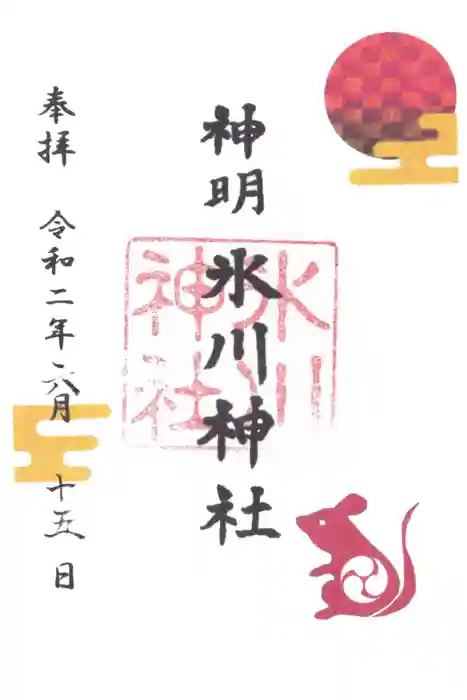 奉拝 令和二年 六月 十五日
神明氷川神社
氷川神社